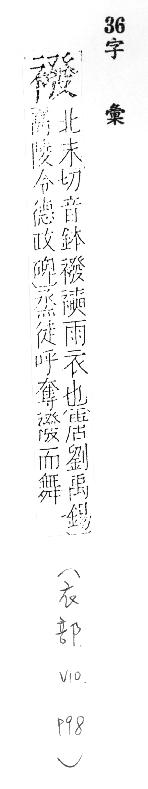 36字彙
襏
北末切音鉢襏襫雨衣也唐劉禹錫
高陵令德政碑蒸徒呼奮襏而舞
(衣部 V10. P98)